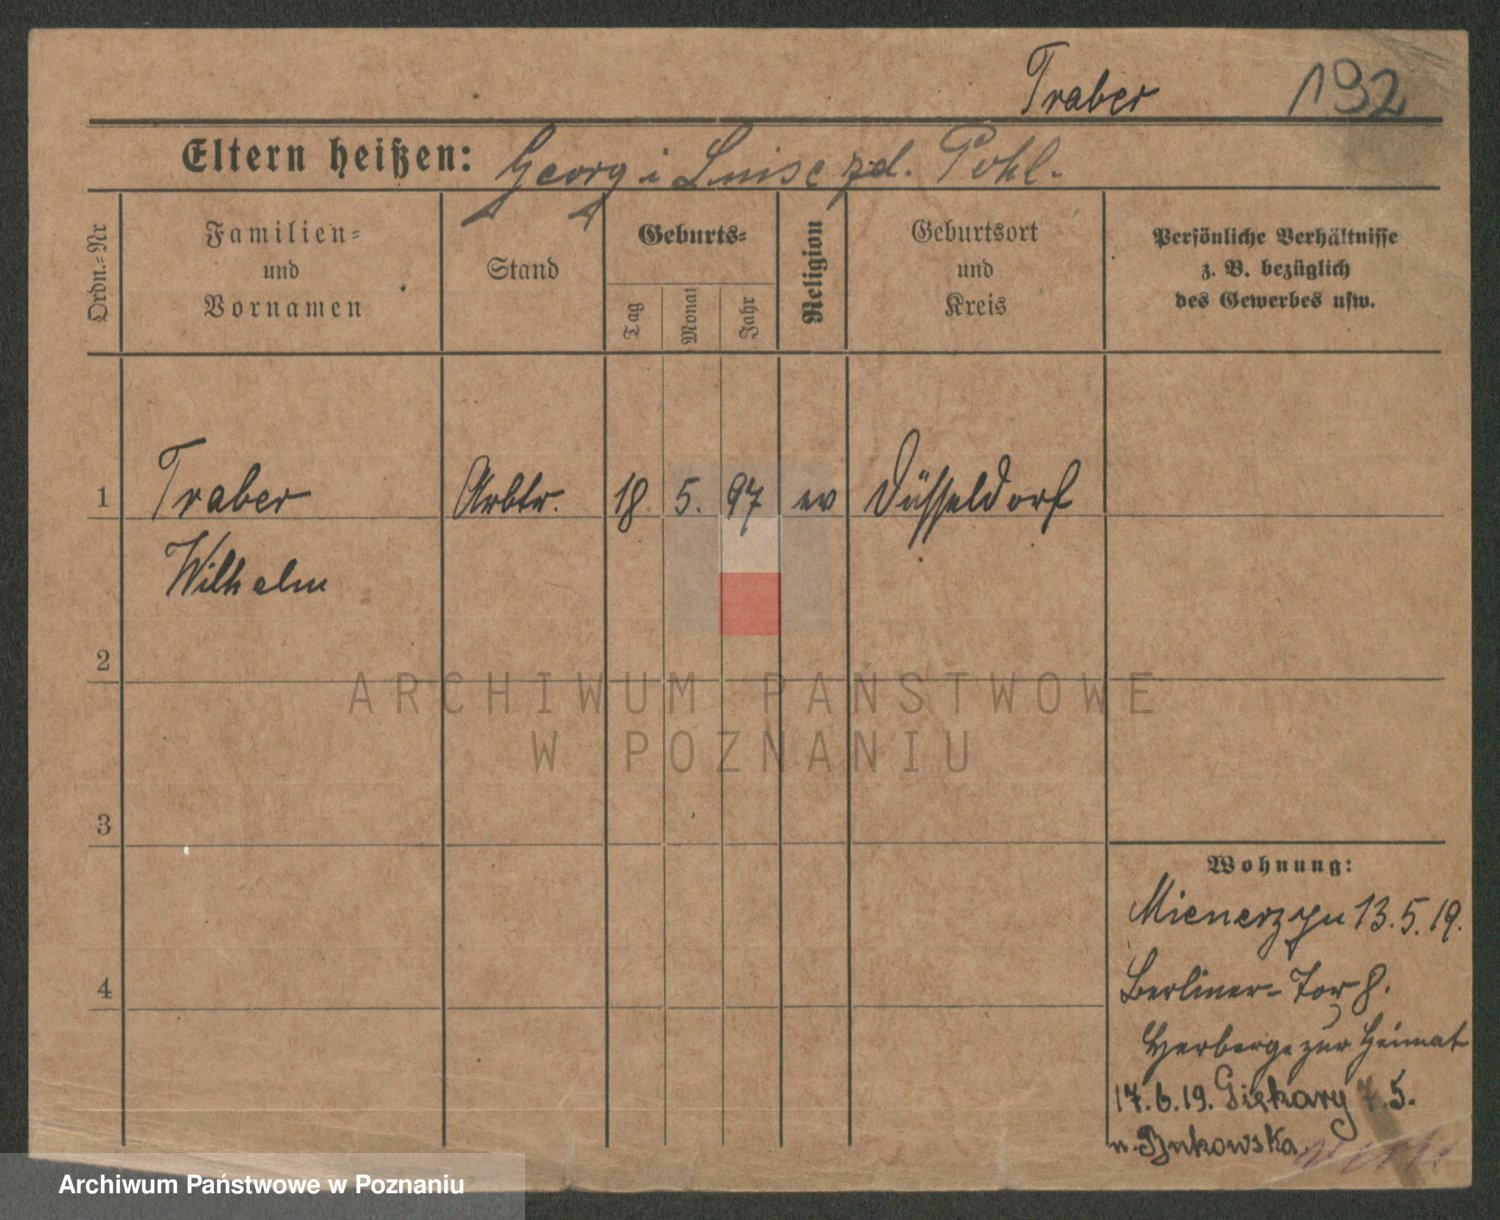 Traber 192
Eltern heißen: Georg i Luise zd. Pohl.
Ordn.-Nr
Familien-
und
Vornamen
Stand
Geburts-
Tag
Monat
Jahr
Religion
Geburtsort
und
Kreis
Persönliche Verhältnisse
z. B. bezüglich
des Gewerbes usw.
1 Traber Arbtr. 18. 5. 97 ev Düsseldorf
Wilhelm
2
ARCHIWUM PAŃSTWOWE
W POZNANIU
3
Wohnung:
13.5.19.
4
Berliner-Tor 8.
Herberge zur Heimat
17.6.19. Piekary 5.
Archiwum Państwowe w Poznaniu